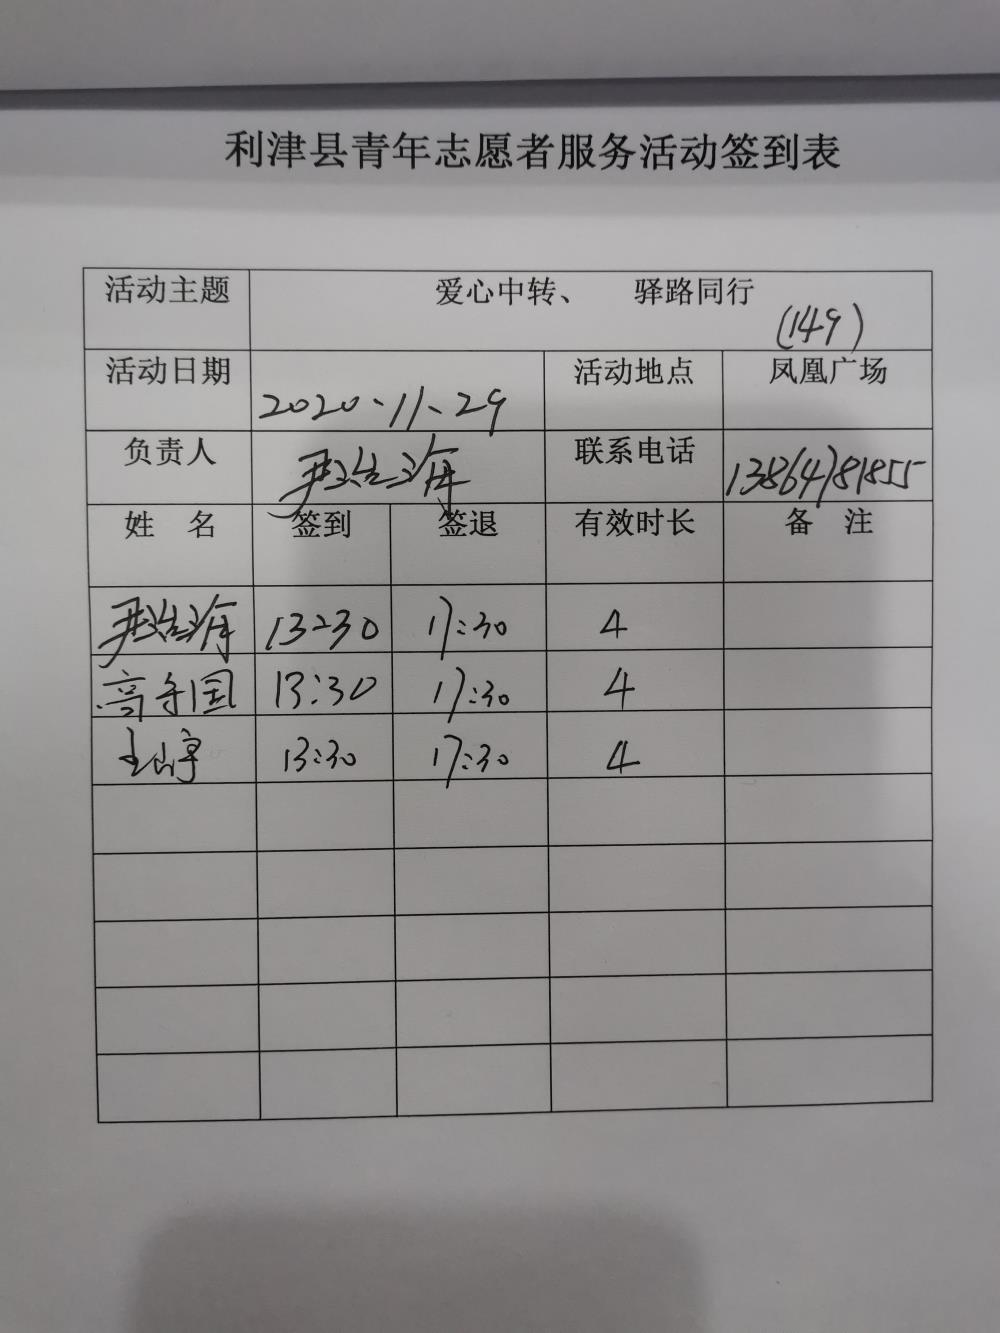 利津县青年志愿者服务活动签到表
活动主题 爱心中转、 驿路同行 (149)
活动日期 2020、11、29 活动地点 凤凰广场
负责人 尹浩海 联系电话 13864781855
姓 名 签到 签退 有效时长 备 注
尹浩海 13:30 17:30 4
高守国 13:30 17:30 4
13:30 17:30 4